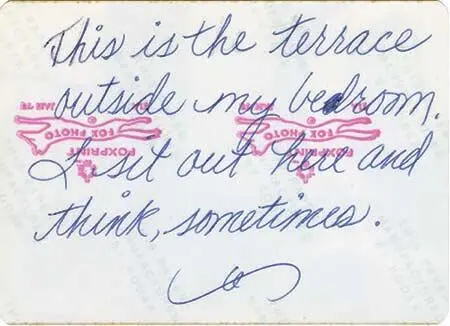 This is the terrace
outside my bedroom.
I sit out here and
think, sometimes.
FOX PHOTO
FOXPRINT
FOX PHOTO
FOXPRINT